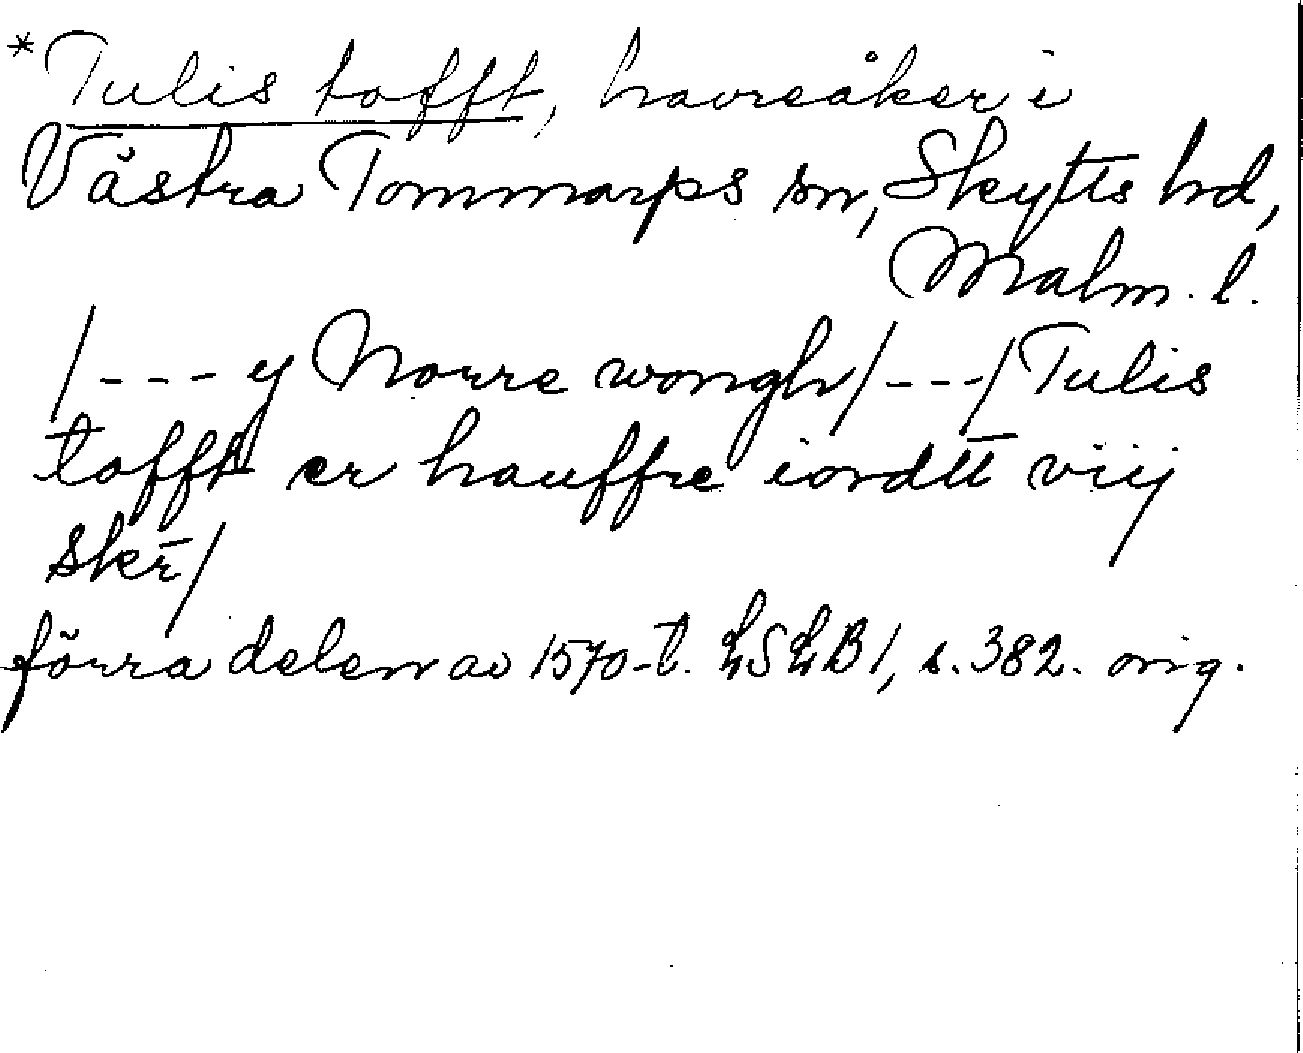 *Tulis tofft, havreåker i
Västra Tommarps sn, Skytts hd,
Malm. l.
/--- y Norre wongh/---/Tulis
tofft er hauffre iordtt viij
skr̄/
förra delen av 1570-t. LSLB 1, s. 382. orig.